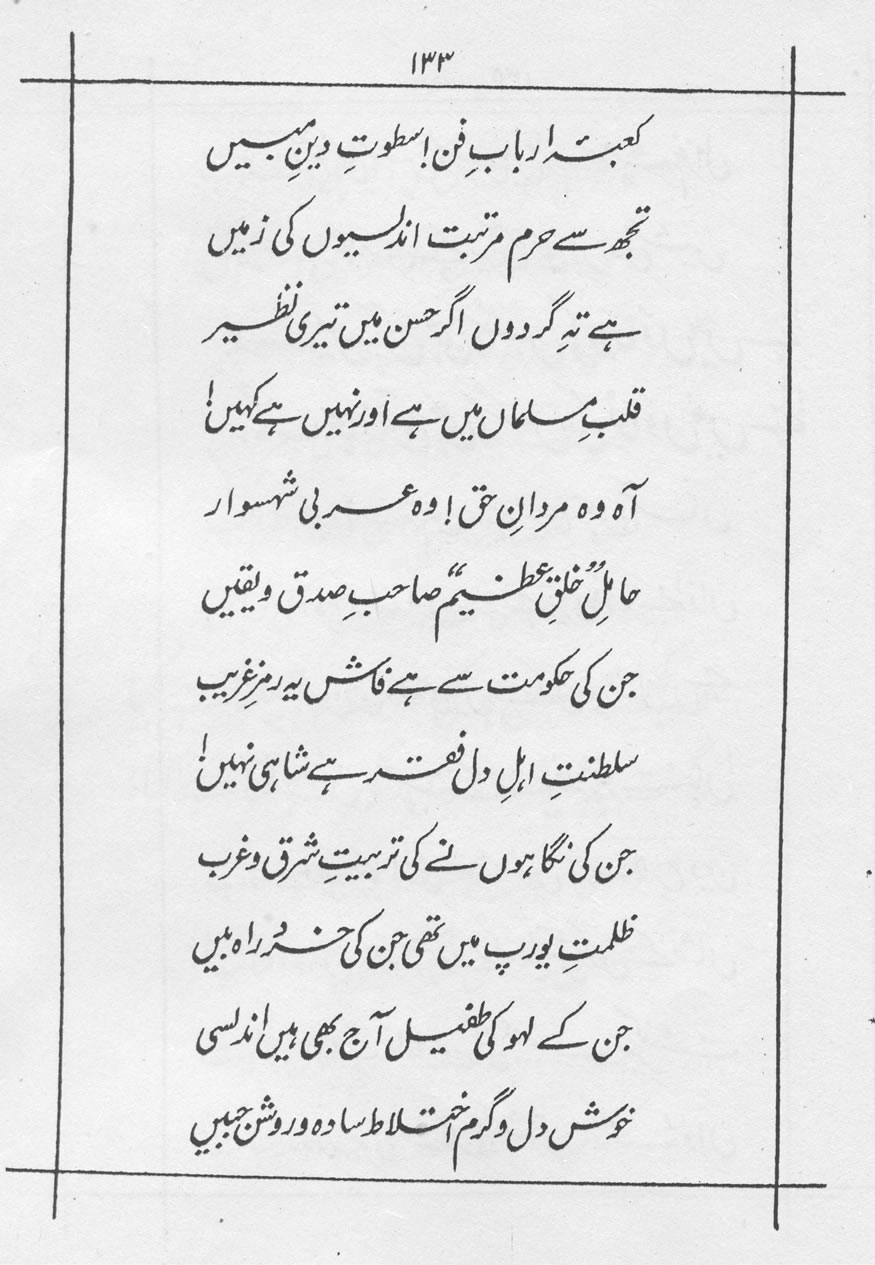 ۱۳۳
کعبۂ اربابِ فن! سطوتِ دینِ مبیں
تجھ سے حرم مرتبت اندلسیوں کی زمیں
ہے تہِ گردوں اگر حسن میں تیری نظیر
قلبِ مسلماں میں ہے اور نہیں ہے کہیں!
آہ وہ مردانِ حق! وہ عربی شہسوار
حاملِ “خلقِ عظیم” صاحبِ صدق و یقیں
جن کی حکومت سے ہے فاش یہ رمزِ غریب
سلطنتِ اہلِ دل فقر ہے شاہی نہیں!
جن کی نگاہوں نے کی تربیتِ شرق و غرب
ظلمتِ یورپ میں تھی جن کی خرد راہ بیں
جن کے لہو کی طفیل آج بھی ہیں اندلسی
خوش دل و گرم اختلاط سادہ و روشن جبیں